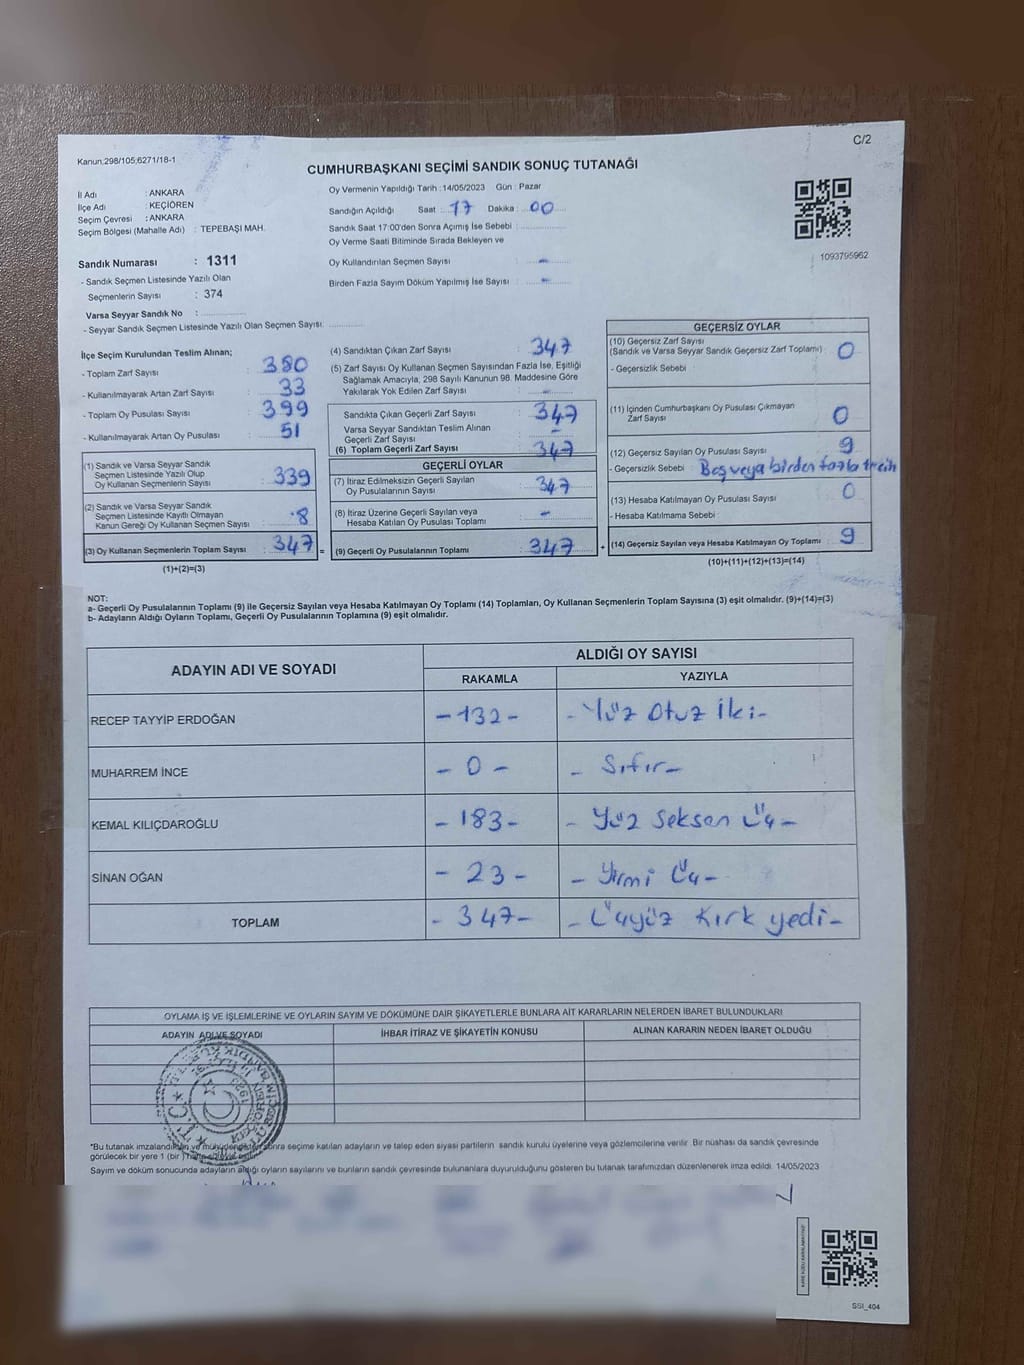 C/2
Kanun:298/105;6271/18-1
CUMHURBAŞKANI SEÇİMİ SANDIK SONUÇ TUTANAĞI
İl Adı : ANKARA
İlçe Adı : KEÇİÖREN
Seçim Çevresi : ANKARA
Seçim Bölgesi (Mahalle Adı) : TEPEBAŞI MAH.
Sandık Numarası : 1311
- Sandık Seçmen Listesinde Yazılı Olan
Seçmenlerin Sayısı : 374
Varsa Seyyar Sandık No :
- Seyyar Sandık Seçmen Listesinde Yazılı Olan Seçmen Sayısı:
Oy Vermenin Yapıldığı Tarih : 14/05/2023 Gün : Pazar
Sandığın Açıldığı Saat : 17 Dakika : 00
Sandık Saat 17:00'den Sonra Açımış İse Sebebi :
Oy Verme Saati Bitiminde Sırada Bekleyen ve
Oy Kullandırılan Seçmen Sayısı : -
Birden Fazla Sayım Döküm Yapılmış İse Sayısı : -
1093795962
İlçe Seçim Kurulundan Teslim Alınan;
- Toplam Zarf Sayısı : 380
- Kullanılmayarak Artan Zarf Sayısı : 33
- Toplam Oy Pusulası Sayısı : 399
- Kullanılmayarak Artan Oy Pusulası : 51
(1) Sandık ve Varsa Seyyar Sandık
Seçmen Listesinde Yazılı Olup
Oy Kullanan Seçmenlerin Sayısı : 339
(2) Sandık ve Varsa Seyyar Sandık
Seçmen Listesinde Kayıtlı Olmayan
Kanun Gereği Oy Kullanan Seçmen Sayısı : 8
(3) Oy Kullanan Seçmenlerin Toplam Sayısı : 347 =
(1)+(2)=(3)
(4) Sandıktan Çıkan Zarf Sayısı : 347
(5) Zarf Sayısı Oy Kullanan Seçmen Sayısından Fazla İse, Eşitliği
Sağlamak Amacıyla; 298 Sayılı Kanunun 98. Maddesine Göre
Yakılarak Yok Edilen Zarf Sayısı : -
Sandıkta Çıkan Geçerli Zarf Sayısı : 347
Varsa Seyyar Sandıktan Teslim Alınan
Geçerli Zarf Sayısı : -
(6) Toplam Geçerli Zarf Sayısı : 347
GEÇERLİ OYLAR
(7) İtiraz Edilmeksizin Geçerli Sayılan
Oy Pusulalarının Sayısı : 347
(8) İtiraz Üzerine Geçerli Sayılan veya
Hesaba Katılan Oy Pusulası Toplamı : -
(9) Geçerli Oy Pusulalarının Toplamı : 347 +
GEÇERSİZ OYLAR
(10) Geçersiz Zarf Sayısı
(Sandık ve Varsa Seyyar Sandık Geçersiz Zarf Toplamı) : 0
- Geçersizlik Sebebi :
(11) İçinden Cumhurbaşkanı Oy Pusulası Çıkmayan
Zarf Sayısı : 0
(12) Geçersiz Sayılan Oy Pusulası Sayısı : 9
- Geçersizlik Sebebi : Boş veya birden fazla tercih
(13) Hesaba Katılmayan Oy Pusulası Sayısı : 0
- Hesaba Katılmama Sebebi :
(14) Geçersiz Sayılan veya Hesaba Katılmayan Oy Toplamı : 9
(10)+(11)+(12)+(13)=(14)
NOT:
a- Geçerli Oy Pusulalarının Toplamı (9) ile Geçersiz Sayılan veya Hesaba Katılmayan Oy Toplamı (14) Toplamları, Oy Kullanan Seçmenlerin Toplam Sayısına (3) eşit olmalıdır. (9)+(14)=(3)
b- Adayların Aldığı Oyların Toplamı, Geçerli Oy Pusulalarının Toplamına (9) eşit olmalıdır.
ADAYIN ADI VE SOYADI
ALDIĞI OY SAYISI
RAKAMLA YAZIYLA
RECEP TAYYİP ERDOĞAN -132- -Yüz Otuz İki-
MUHARREM İNCE -0- -Sıfır-
KEMAL KILIÇDAROĞLU -183- -Yüz Seksen Üç-
SİNAN OĞAN -23- -Yirmi Üç-
TOPLAM -347- -Üçyüz Kırk yedi-
OYLAMA İŞ VE İŞLEMLERİNE VE OYLARIN SAYIM VE DÖKÜMÜNE DAİR ŞİKAYETLERLE BUNLARA AİT KARARLARIN NELERDEN İBARET BULUNDUKLARI
ADAYIN ADI VE SOYADI İHBAR İTİRAZ VE ŞİKAYETİN KONUSU ALINAN KARARIN NEDEN İBARET OLDUĞU
*Bu tutanak imzalandıktan ve mühürlendikten sonra seçime katılan adayların ve talep eden siyasi partilerin sandık kurulu üyelerine veya gözlemcilerine verilir. Bir nüshası da sandık çevresinde
görülecek bir yere 1 (bir)
Sayım ve döküm sonucunda adayların aldığı oyların sayılarını ve bunların sandık çevresinde bulunanlara duyurulduğunu gösteren bu tutanak tarafımızdan düzenlenerek imza edildi. 14/05/2023
SSI_404